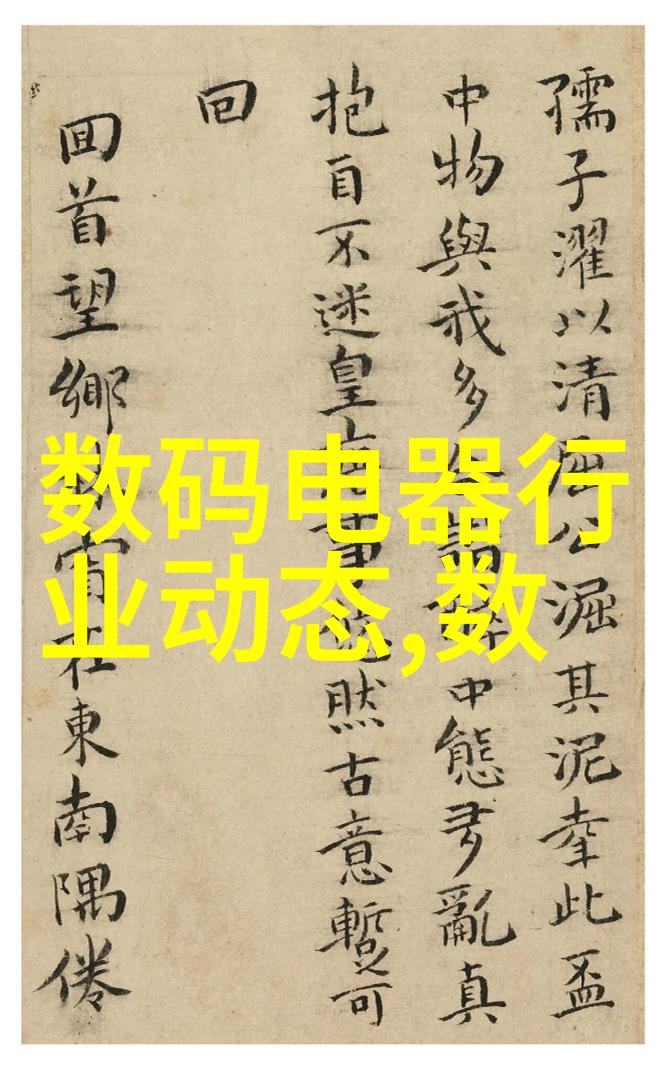 孺子濯以清屈公淈其泥此盃
中物與我多中態亂真
抱自不迷皇然古意暫可
回
囬首望鄉在東南隅倦
数码电器行
业动态,数